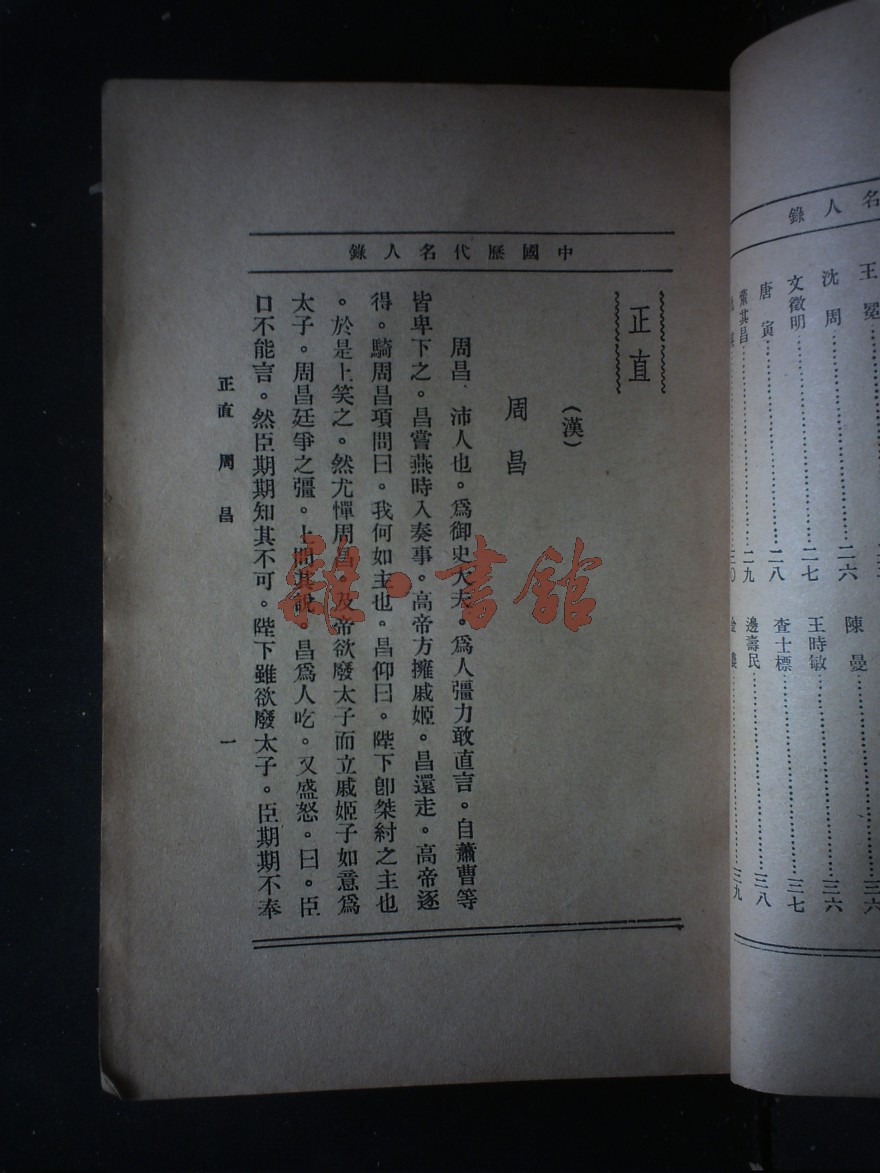 名人錄
王冕
沈周⋯⋯二六
文徵明⋯⋯二七
唐寅⋯⋯二八
董其昌⋯⋯二九
三〇
陳曼⋯⋯三六
王時敏⋯⋯三六
查士標⋯⋯三七
邊壽民⋯⋯三八
三九
中國歷代名人錄
正直
(漢)
周昌
周昌．沛人也。爲御史大夫。爲人彊力敢直言。自蕭曹等
皆卑下之。昌嘗燕時入奏事。高帝方擁戚姬。昌還走。高帝逐
得。騎周昌項問曰。我何如主也。昌仰曰。陛下卽桀紂之主也
。於是上笑之。然尤憚周昌。及帝欲廢太子而立戚姬子如意爲
太子。周昌廷爭之彊。上問其說。昌爲人吃。又盛怒。曰。臣
口不能言。然臣期期知其不可。陛下雖欲廢太子。臣期期不奉
正直 周昌 一
雜·書館